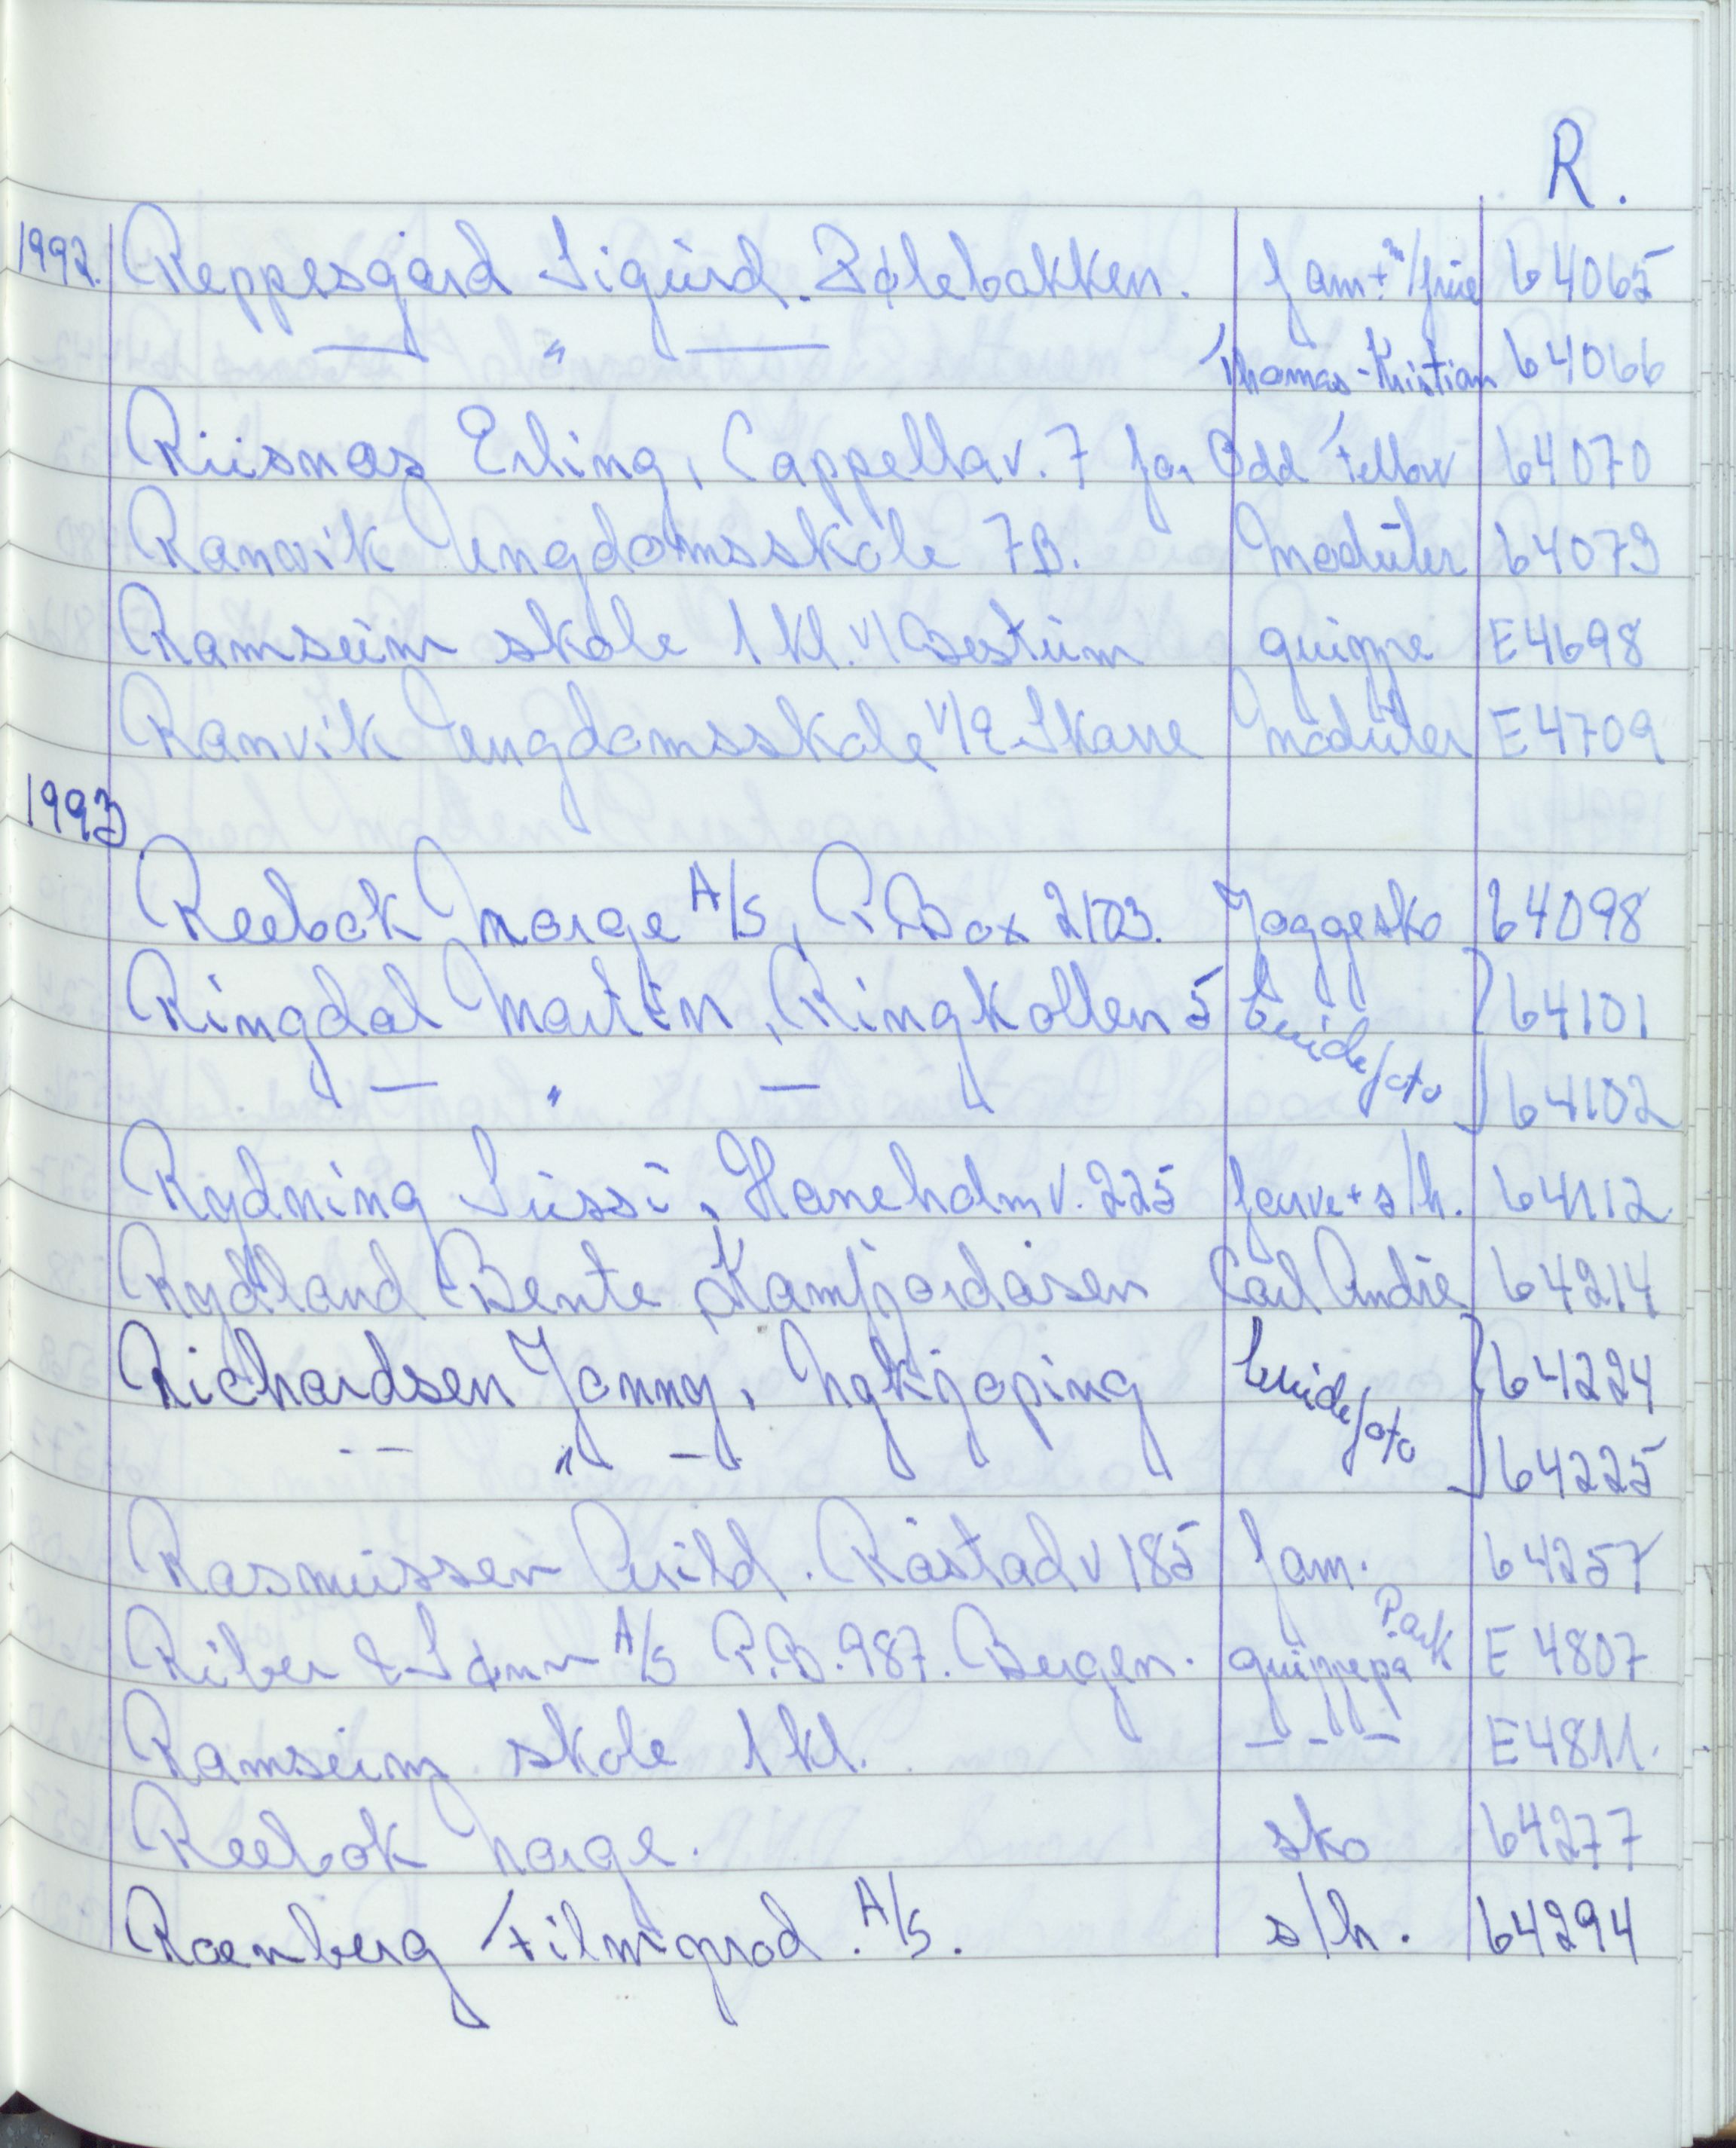 R.
1992. Reppesgård Sigurd. Bølebakken. fam + m/frue 64065
— " — Thomas-Kristian 64066
Riisnæs Erling, Cappellav. 7 for Odd Fellow 64070
Ranvik Ungdomsskole 7B. Moduler 64073
Ramsum skole 1 kl. v/ Bestum gruppe E4698
Ranvik Ungdomsskole v/E. Skarre Moduler E4709
1993.
Reebok Norge A/S, P.Box 2103. Joggesko 64098
Ringdal Martin, Ringkollen 5 brude 64101
— " — foto 64102
Rydning Sussi, Haneholmv. 225 farve + s/h. 64112
Rydland Bente Kamfjordåsen Carl André 64214
Richardsen Jonny, Nykjøping brude 64224
— " — foto 64225
Rasmussen Arild. Råstadv 185 fam. 64257
Riber & Sønn A/S P.B. 987. Bergen. gruppe på Park E 4807
Ramsum skole 1 kl. — - — E4811.
Reebok Norge. sko 64277
Roenberg Filmprod. A/S. s/h. 64294